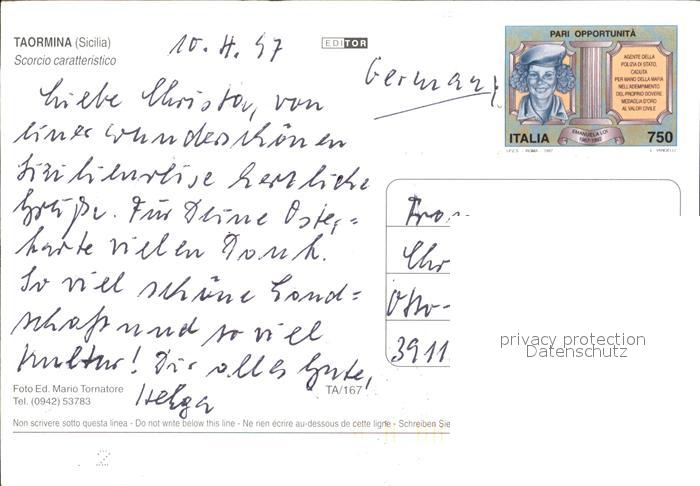 TAORMINA (Sicilia)
Scorcio caratteristico
10. 4. 97
EDITOR
Germany
PARI OPPORTUNITÀ
AGENTE DELLA
POLIZIA DI STATO,
CADUTA
PER MANO DELLA MAFIA
NELL'ADEMPIMENTO
DEL PROPRIO DOVERE
MEDAGLIA D'ORO
AL VALOR CIVILE
EMANUELA LOI
1967-1992
ITALIA 750
I.P.Z.S. - ROMA - 1997
Liebe Christa, von
einer wunderschönen
Sizilienreise herzliche
Grüße. Für Deine Oster=
karte vielen Dank.
So viel schöne Land=
schaft und so viel
Kultur! Dir alles Gute,
Helga
Frau
Chr
Otto-
3911
privacy protection
Datenschutz
Foto Ed. Mario Tornatore
Tel. (0942) 53783
TA/167
Non scrivere sotto questa linea - Do not write below this line - Ne rien écrire au-dessous de cette ligne - Schreiben Sie
2